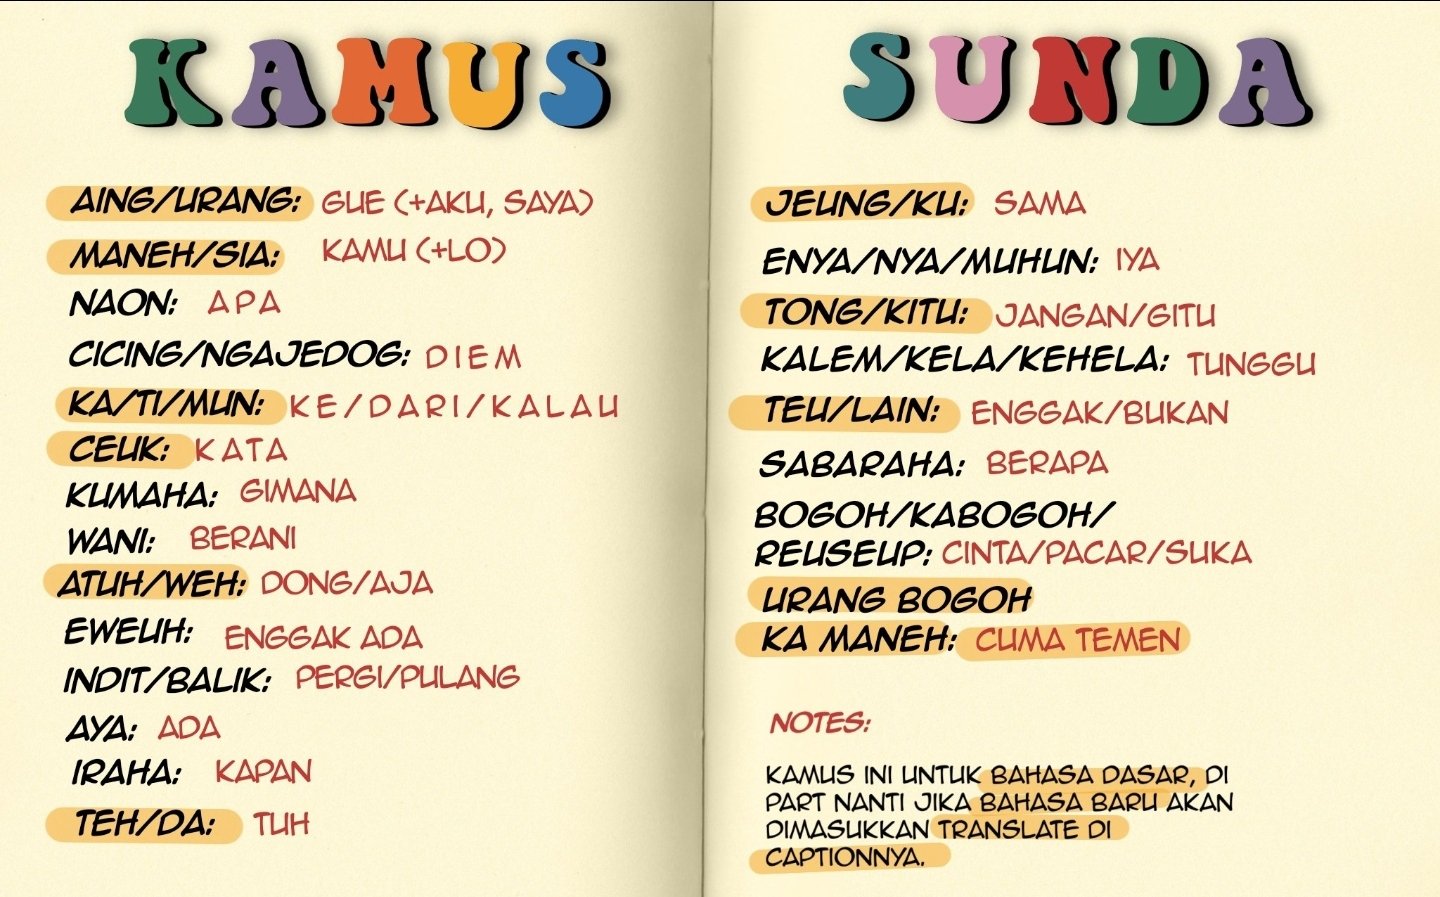 KAMUS
AING/URANG: GUE (+AKU, SAYA)
MANEH/SIA: KAMU (+LO)
NAON: APA
CICING/NGAJEDOG: DIEM
KA/TI/MUN: KE/DARI/KALAU
CEUK: KATA
KUMAHA: GIMANA
WANI: BERANI
ATUH/WEH: DONG/AJA
EWEUH: ENGGAK ADA
INDIT/BALIK: PERGI/PULANG
AYA: ADA
IRAHA: KAPAN
TEH/DA: TUH
SUNDA
JEUNG/KU: SAMA
ENYA/NYA/MUHUN: IYA
TONG/KITU: JANGAN/GITU
KALEM/KELA/KEHELA: TUNGGU
TEU/LAIN: ENGGAK/BUKAN
SABARAHA: BERAPA
BOGOH/KABOGOH/
REUSEUP: CINTA/PACAR/SUKA
URANG BOGOH
KA MANEH: CUMA TEMEN
NOTES:
KAMUS INI UNTUK BAHASA DASAR, DI
PART NANTI JIKA BAHASA BARU AKAN
DIMASUKKAN TRANSLATE DI
CAPTIONNYA.